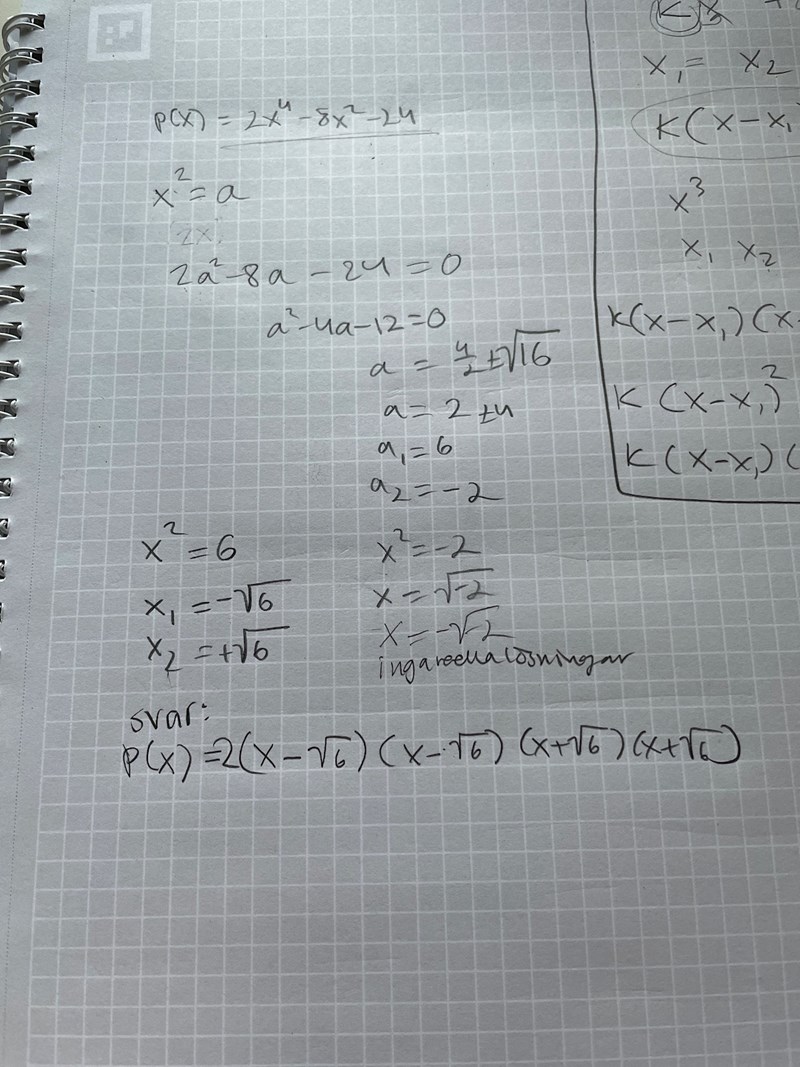 p(x) = 2x⁴ - 8x² - 24
x² = a
2x
2a² - 8a - 24 = 0
a² - 4a - 12 = 0
a = 4/2 ± √16
a = 2 ± 4
a₁ = 6
a₂ = -2
x² = 6
x₁ = -√6
x₂ = +√6
x² = -2
x = √-2
x = -√-2
inga reella lösningar
svar:
p(x) = 2(x - √6)(x - √6)(x + √6)(x + √6)
x₁ = x₂
K(x - x₁
x³
x₁ x₂
K(x - x₁)(x -
K(x - x₁)²
K(x - x₁)(